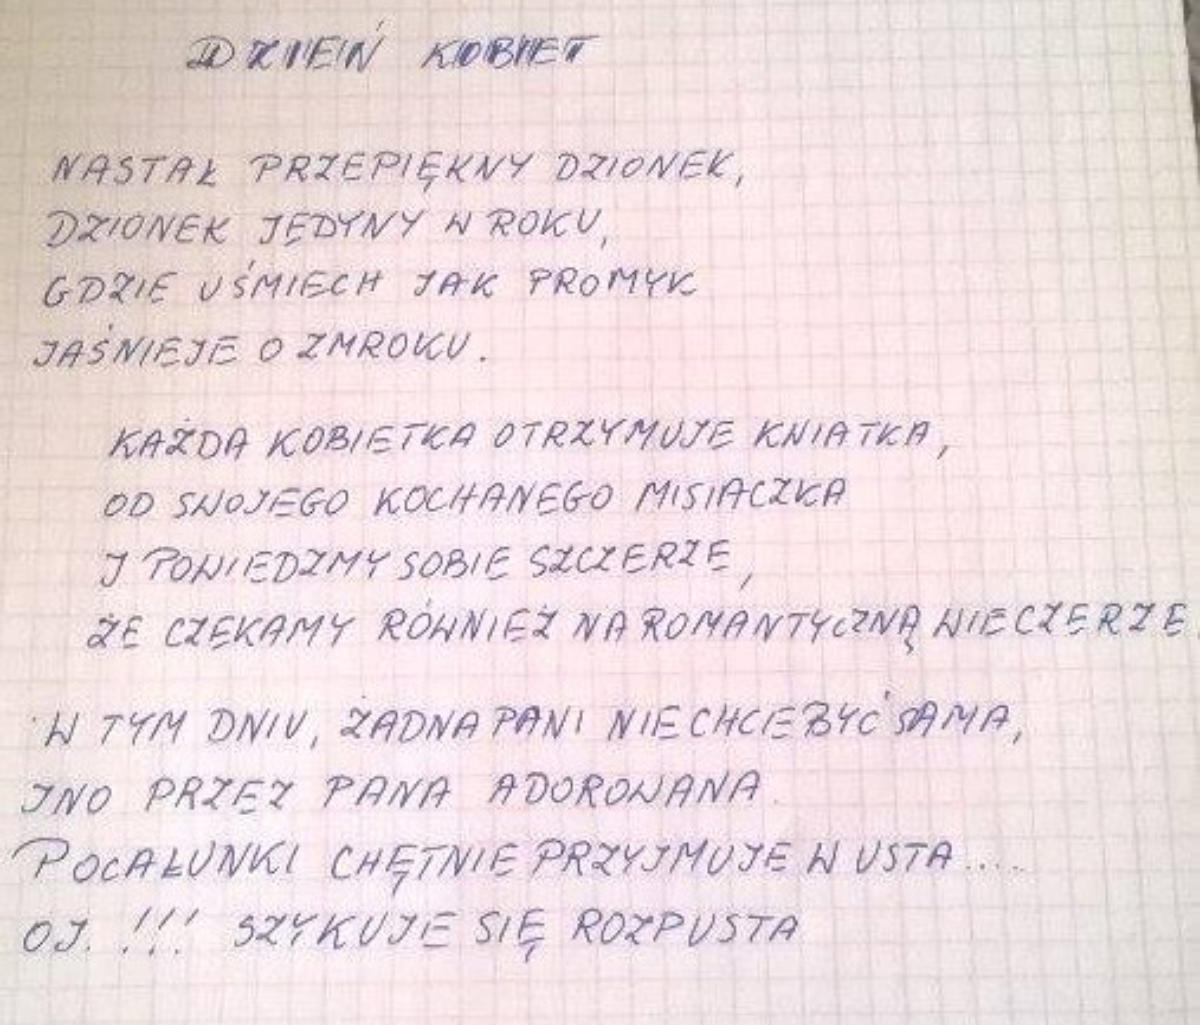 DZIEŃ KOBIET
NASTAŁ PRZEPIĘKNY DZIONEK,
DZIONEK JEDYNY W ROKU,
GDZIE UŚMIECH JAK PROMYK
JAŚNIEJE O ZMROKU.
KAŻDA KOBIETKA OTRZYMUJE KWIATKA,
OD SWOJEGO KOCHANEGO MISIACZKA
I POWIEDZMY SOBIE SZCZERZE,
ŻE CZEKAMY RÓWNIEŻ NA ROMANTYCZNĄ WIECZERZE
W TYM DNIU, ŻADNA PANI NIE CHCE BYĆ SAMA,
INO PRZEZ PANA ADOROWANA.
POCAŁUNKI CHĘTNIE PRZYJMUJE W USTA....
OJ. !!! SZYKUJE SIĘ ROZPUSTA